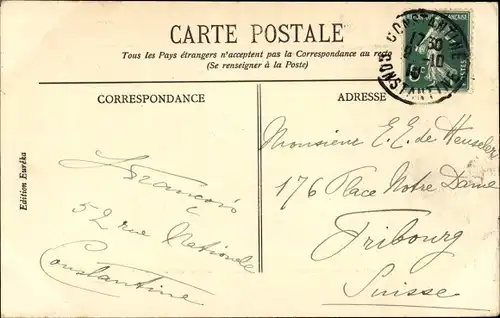 CARTE POSTALE
Tous les Pays étrangers n'acceptent pas la Correspondance au
(Se renseigner à la Poste)
CORRESPONDANCE
ADRESSE
CONSTANTINE
CONSTANTINE
POSTES
Edition Euréka
L. François
52 rue Nationale
Constantine
Monsieur E. E. de Heuseler
176 Place Notre Dame
Fribourg
Suisse